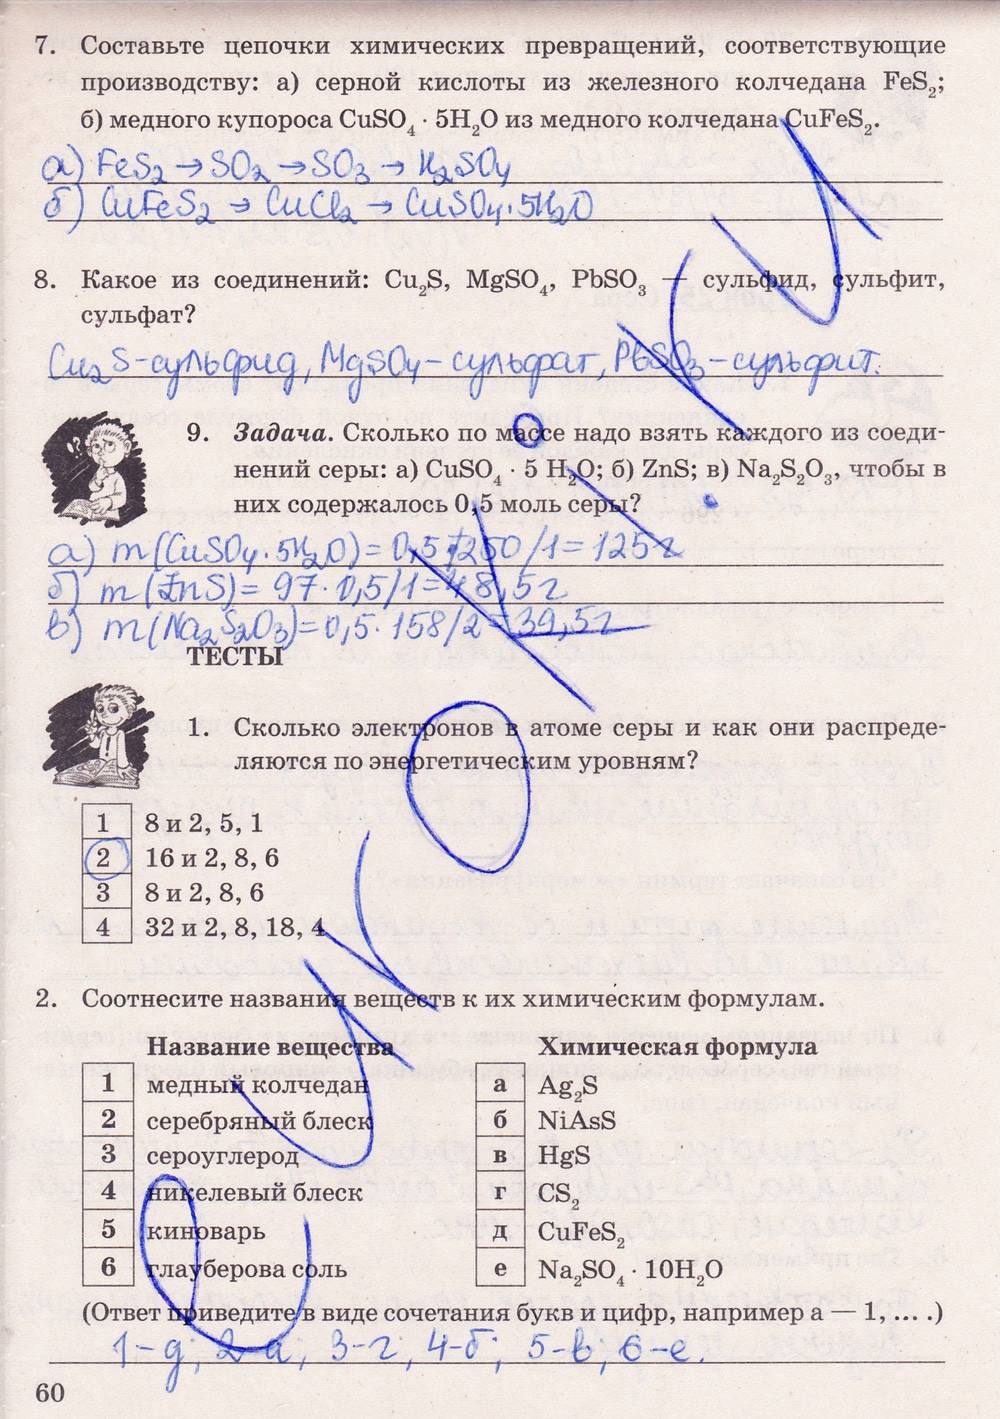 7. Составьте цепочки химических превращений, соответствующие
производству: а) серной кислоты из железного колчедана FeS₂;
б) медного купороса CuSO₄ · 5H₂O из медного колчедана CuFeS₂.
а) FeS₂ → SO₂ → SO₃ → H₂SO₄
б) CuFeS₂ → CuCl₂ → CuSO₄·5H₂O
8. Какое из соединений: Cu₂S, MgSO₄, PbSO₃ — сульфид, сульфит,
сульфат?
Cu₂S-сульфид, MgSO₄-сульфат, PbSO₃-сульфит.
9. Задача. Сколько по массе надо взять каждого из соеди-
нений серы: а) CuSO₄ · 5 H₂O; б) ZnS; в) Na₂S₂O₃, чтобы в
них содержалось 0,5 моль серы?
а) m(CuSO₄·5H₂O)=0,5·250/1=125г
б) m(ZnS)=97·0,5/1=48,5г
в) m(Na₂S₂O₃)=0,5·158/2=39,5г
ТЕСТЫ
1. Сколько электронов в атоме серы и как они распреде-
ляются по энергетическим уровням?
1 8 и 2, 5, 1
2 16 и 2, 8, 6
3 8 и 2, 8, 6
4 32 и 2, 8, 18, 4
2. Соотнесите названия веществ к их химическим формулам.
Название вещества Химическая формула
1 медный колчедан а Ag₂S
2 серебряный блеск б NiAsS
3 сероуглерод в HgS
4 никелевый блеск г CS₂
5 киноварь д CuFeS₂
6 глауберова соль е Na₂SO₄ · 10H₂O
(Ответ приведите в виде сочетания букв и цифр, например а — 1, ... .)
1-д; 2-а; 3-г, 4-б; 5-в; 6-е.
60